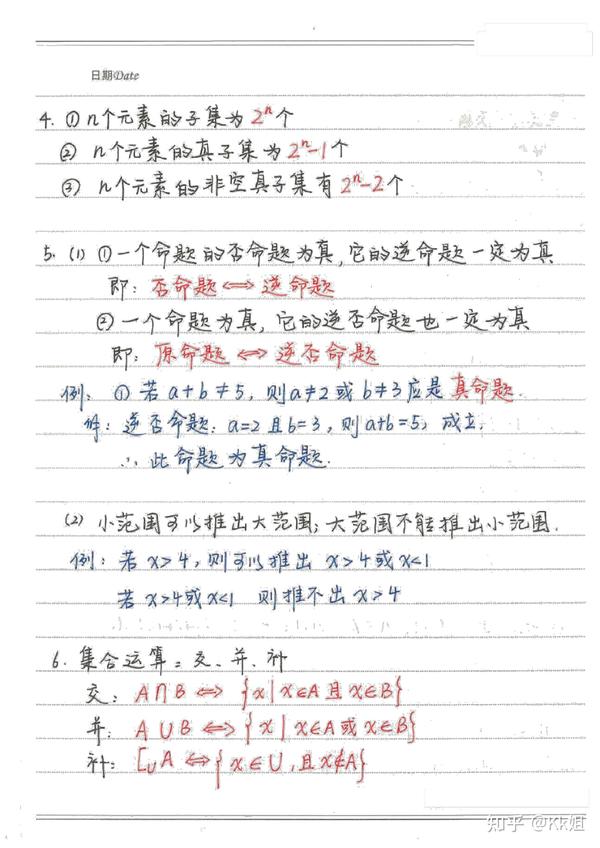 日期Date
4. ①n个元素的子集为2ⁿ个
② n个元素的真子集为2ⁿ-1个
③ n个元素的非空真子集有2ⁿ-2个
5. (1) ①一个命题的否命题为真,它的逆命题一定为真
即: 否命题⟺逆命题
②一个命题为真,它的逆否命题也一定为真
即: 原命题⟺逆否命题
例: ① 若a+b≠5, 则a≠2或b≠3应是真命题.
解: 逆否命题: a=2且b=3, 则a+b=5, 成立.
∴此命题为真命题.
(2) 小范围可以推出大范围; 大范围不能推出小范围.
例: 若x>4, 则可以推出 x>4或x<1
若x>4或x<1 则推不出x>4
6. 集合运算: 交、并、补
交: A∩B ⟺ {x|x∈A且x∈B}
并: A∪B ⟺ {x|x∈A或x∈B}
补: ∁ᵤA ⟺ {x∈U, 且x∉A}
知乎 @Kk姐